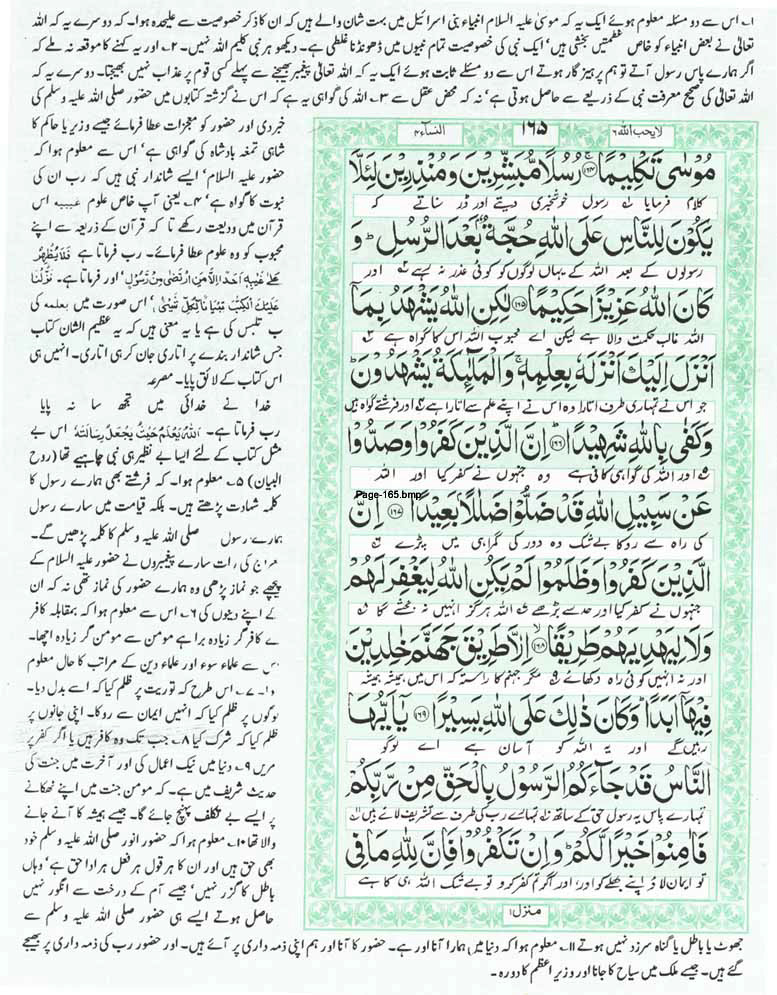 ۱۔ اس سے دو مسئلہ معلوم ہوئے ایک یہ کہ موسیٰ علیہ السلام انبیاء بنی اسرائیل میں بہت شان والے ہیں کہ ان کا ذکر خصوصیت سے علیحدہ ہوا۔ دوسرے یہ کہ اللہ
تعالیٰ نے بعض انبیاء کو خاص عظمتیں بخشی ہیں' ایک نبی کی خصوصیت تمام نبیوں میں ڈھونڈنا غلطی ہے۔ دیکھو ہر نبی کلیم اللہ نہیں۔ ۲۔ اور یہ کہنے کا موقعہ نہ ملے کہ
اگر ہمارے پاس رسول آتے تو ہم پرہیزگار ہوتے اس سے دو مسئلے ثابت ہوئے ایک یہ کہ اللہ تعالیٰ پیغمبر بھیجنے سے پہلے کسی قوم پر عذاب نہیں بھیجتا۔ دوسرے یہ کہ
اللہ تعالیٰ کی صحیح معرفت نبی کے ذریعے سے حاصل ہوتی ہے' نہ کہ محض عقل سے ۳۔ اللہ کی گواہی یہ ہے کہ اس نے گزشتہ کتابوں میں حضور صلی اللہ علیہ وسلم کی
خبر دی اور حضور کو معجزات عطا فرمائے جیسے وزیر یا حاکم کا
شاہی تمغہ بادشاہ کی گواہی ہے' اس سے معلوم ہوا کہ
حضور علیہ السلام' ایسے شاندار نبی ہیں کہ رب ان کی
نبوت کا گواہ ہے' ۴۔ یعنی آپ خاص علوم غیبیہ
قرآن میں ودیعت رکھے تا کہ قرآن کے ذریعہ سے اپنے
محبوب کو وہ علوم عطا فرمائے۔ رب فرماتا ہے فَلَا یُظْهِرُ
عَلٰی غَیْبِهٖ اَحَدًا اِلَّا مَنِ ارْتَضٰی مِنْ رَّسُوْلٍ' اور فرماتا ہے۔ نَزَّلْنَا
عَلَیْكَ الْكِتٰبَ تِبْیَانًا لِّكُلِّ شَیْئٍ' اس صورت میں بعلمه کی
ب تلبس کی ہے یا یہ معنی ہیں کہ یہ عظیم الشان کتاب
جس شاندار بندے پر اتاری جان کر ہی اتاری۔ انہیں ہی
اس کتاب کے لائق پایا۔ مصرعہ
خدا نے خدائی میں تجھ سا نہ پایا
رب فرماتا ہے۔ اَللّٰهُ یَعْلَمُ حَیْثُ یَجْعَلُ رِسَالَتَهٗ اس بے
مثل کتاب کے لئے ایسا بے نظیر ہی نبی چاہیے تھا (روح
البیان) ۵۔ معلوم ہوا کہ فرشتے بھی ہمارے رسول کا
کلمہ شہادت پڑھتے ہیں۔ بلکہ قیامت میں سارے رسول
ہمارے رسول صلی اللہ علیہ وسلم کا کلمہ پڑھیں گے۔
کی رات سارے پیغمبروں نے حضور علیہ السلام کے
پیچھے جو نماز پڑھی وہ ہمارے حضور کی نماز تھی نہ کہ ان
کے اپنے دینوں کی ۶۔ اس سے معلوم ہوا کہ بمقابلہ کافر
کافر گر زیادہ برا ہے مومن سے مومن گر زیادہ اچھا۔
سے علماء سوء اور علماء دین کے مراتب کا حال معلوم
۷۔ اس طرح کہ توریت پر ظلم کیا کہ اسے بدل دیا۔
لوگوں پر ظلم کیا کہ انہیں ایمان سے روکا۔ اپنی جانوں پر
ظلم کیا کہ شرک کیا ۸۔ جب تک وہ کافر ہیں یا اگر کفر پر
مریں ۹۔ دنیا میں نیک اعمال کی اور آخرت میں جنت کی
حدیث شریف میں ہے۔ کہ مومن جنت میں اپنے ٹھکانے
پر ایسے بے تکلف پہنچ جائے گا۔ جیسے ہمیشہ کا آنے جانے
والا تھا ۱۰۔ معلوم ہوا کہ حضور انور صلی اللہ علیہ وسلم خود
بھی حق ہیں اور ان کا ہر قول ہر فعل ہر ادا حق ہے' وہاں
باطل کا گزر نہیں' جیسے آم کے درخت سے انگور نہیں
حاصل ہوتے ایسے ہی حضور صلی اللہ علیہ وسلم سے
جھوٹ یا باطل یا گناہ سرزد نہیں ہوتے ۱۱۔ معلوم ہوا کہ دنیا میں ہمارا آنا اور ہے۔ حضور کا آنا اور ہم اپنی ذمہ داری پر آئے ہیں۔ اور حضور رب کی ذمہ داری پر بھیجے
گئے ہیں۔ جیسے ملک میں سیاح کا جانا اور وزیر اعظم کا دورہ۔
لا یحب اللہ ۶ ۱۶۵ النساء ۴
مُوْسٰی تَكْلِیْمًا ۱۶۴ رُسُلًا مُّبَشِّرِیْنَ وَمُنْذِرِیْنَ لِئَلَّا
کلام فرمایا رسول خوشخبری دیتے اور ڈر سناتے کہ
یَكُوْنَ لِلنَّاسِ عَلَی اللّٰهِ حُجَّةٌۢ بَعْدَ الرُّسُلِ وَ
رسولوں کے بعد اللہ کے یہاں لوگوں کو کوئی عذر نہ رہے اور
كَانَ اللّٰهُ عَزِیْزًا حَكِیْمًا ۱۶۵ لٰكِنِ اللّٰهُ یَشْهَدُ بِمَاۤ
اللہ غالب حکمت والا ہے لیکن اے محبوب اللہ اس کا گواہ ہے
اَنْزَلَ اِلَیْكَ اَنْزَلَهٗ بِعِلْمِهٖ وَالْمَلٰٓىِٕكَةُ یَشْهَدُوْنَ
جو اس نے تمہاری طرف اتارا وہ اس نے اپنے علم سے اتارا ہے اور فرشتے گواہ ہیں
وَكَفٰی بِاللّٰهِ شَهِیْدًا ۱۶۶ اِنَّ الَّذِیْنَ كَفَرُوْا وَصَدُّوْا
اور اللہ کی گواہی کافی ہے وہ جنہوں نے کفر کیا اور اللہ
Page-165.bmp
عَنْ سَبِیْلِ اللّٰهِ قَدْ ضَلُّوْا ضَلٰلًۢا بَعِیْدًا ۱۶۷ اِنَّ
کی راہ سے روکا بے شک وہ دور کی گمراہی میں پڑے
الَّذِیْنَ كَفَرُوْا وَظَلَمُوْا لَمْ یَكُنِ اللّٰهُ لِیَغْفِرَ لَهُمْ
جنہوں نے کفر کیا اور حد سے بڑھے اللہ ہرگز انہیں نہ بخشے گا
وَلَا لِیَهْدِیَهُمْ طَرِیْقًا ۱۶۸ اِلَّا طَرِیْقَ جَهَنَّمَ خٰلِدِیْنَ
اور نہ انہیں کوئی راہ دکھائے مگر جہنم کا راستہ کہ اس میں ہمیشہ ہمیشہ
فِیْهَاۤ اَبَدًا وَكَانَ ذٰلِكَ عَلَی اللّٰهِ یَسِیْرًا ۱۶۹ یٰۤاَیُّهَا
رہیں گے اور یہ اللہ کو آسان ہے اے لوگو
النَّاسُ قَدْ جَآءَكُمُ الرَّسُوْلُ بِالْحَقِّ مِنْ رَّبِّكُمْ
تمہارے پاس یہ رسول حق کے ساتھ تمہارے رب کی طرف سے تشریف لائے ہیں
فَاٰمِنُوْا خَیْرًا لَّكُمْ وَاِنْ تَكْفُرُوْا فَاِنَّ لِلّٰهِ مَا فِی
تو ایمان لاؤ اپنے بھلے کو اور اگر تم کفر کرو تو بے شک اللہ ہی کا ہے
منزل ۱